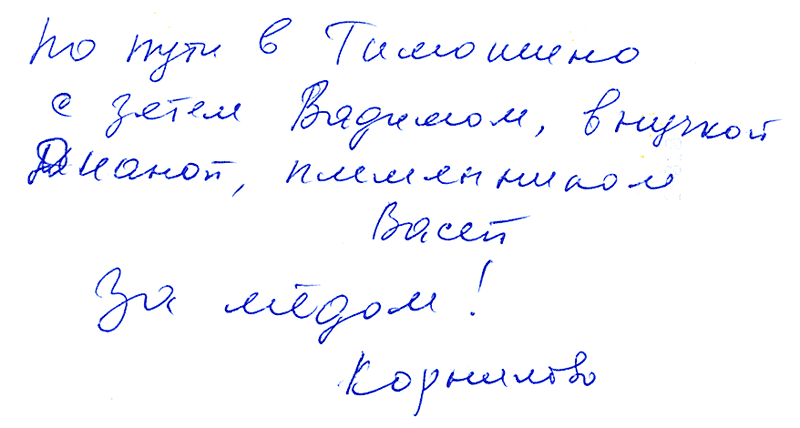 По пути в Тимошино
с зятем Вадимом, внучкой
Дианой, племянником
Васей
За мёдом!
Корнилово